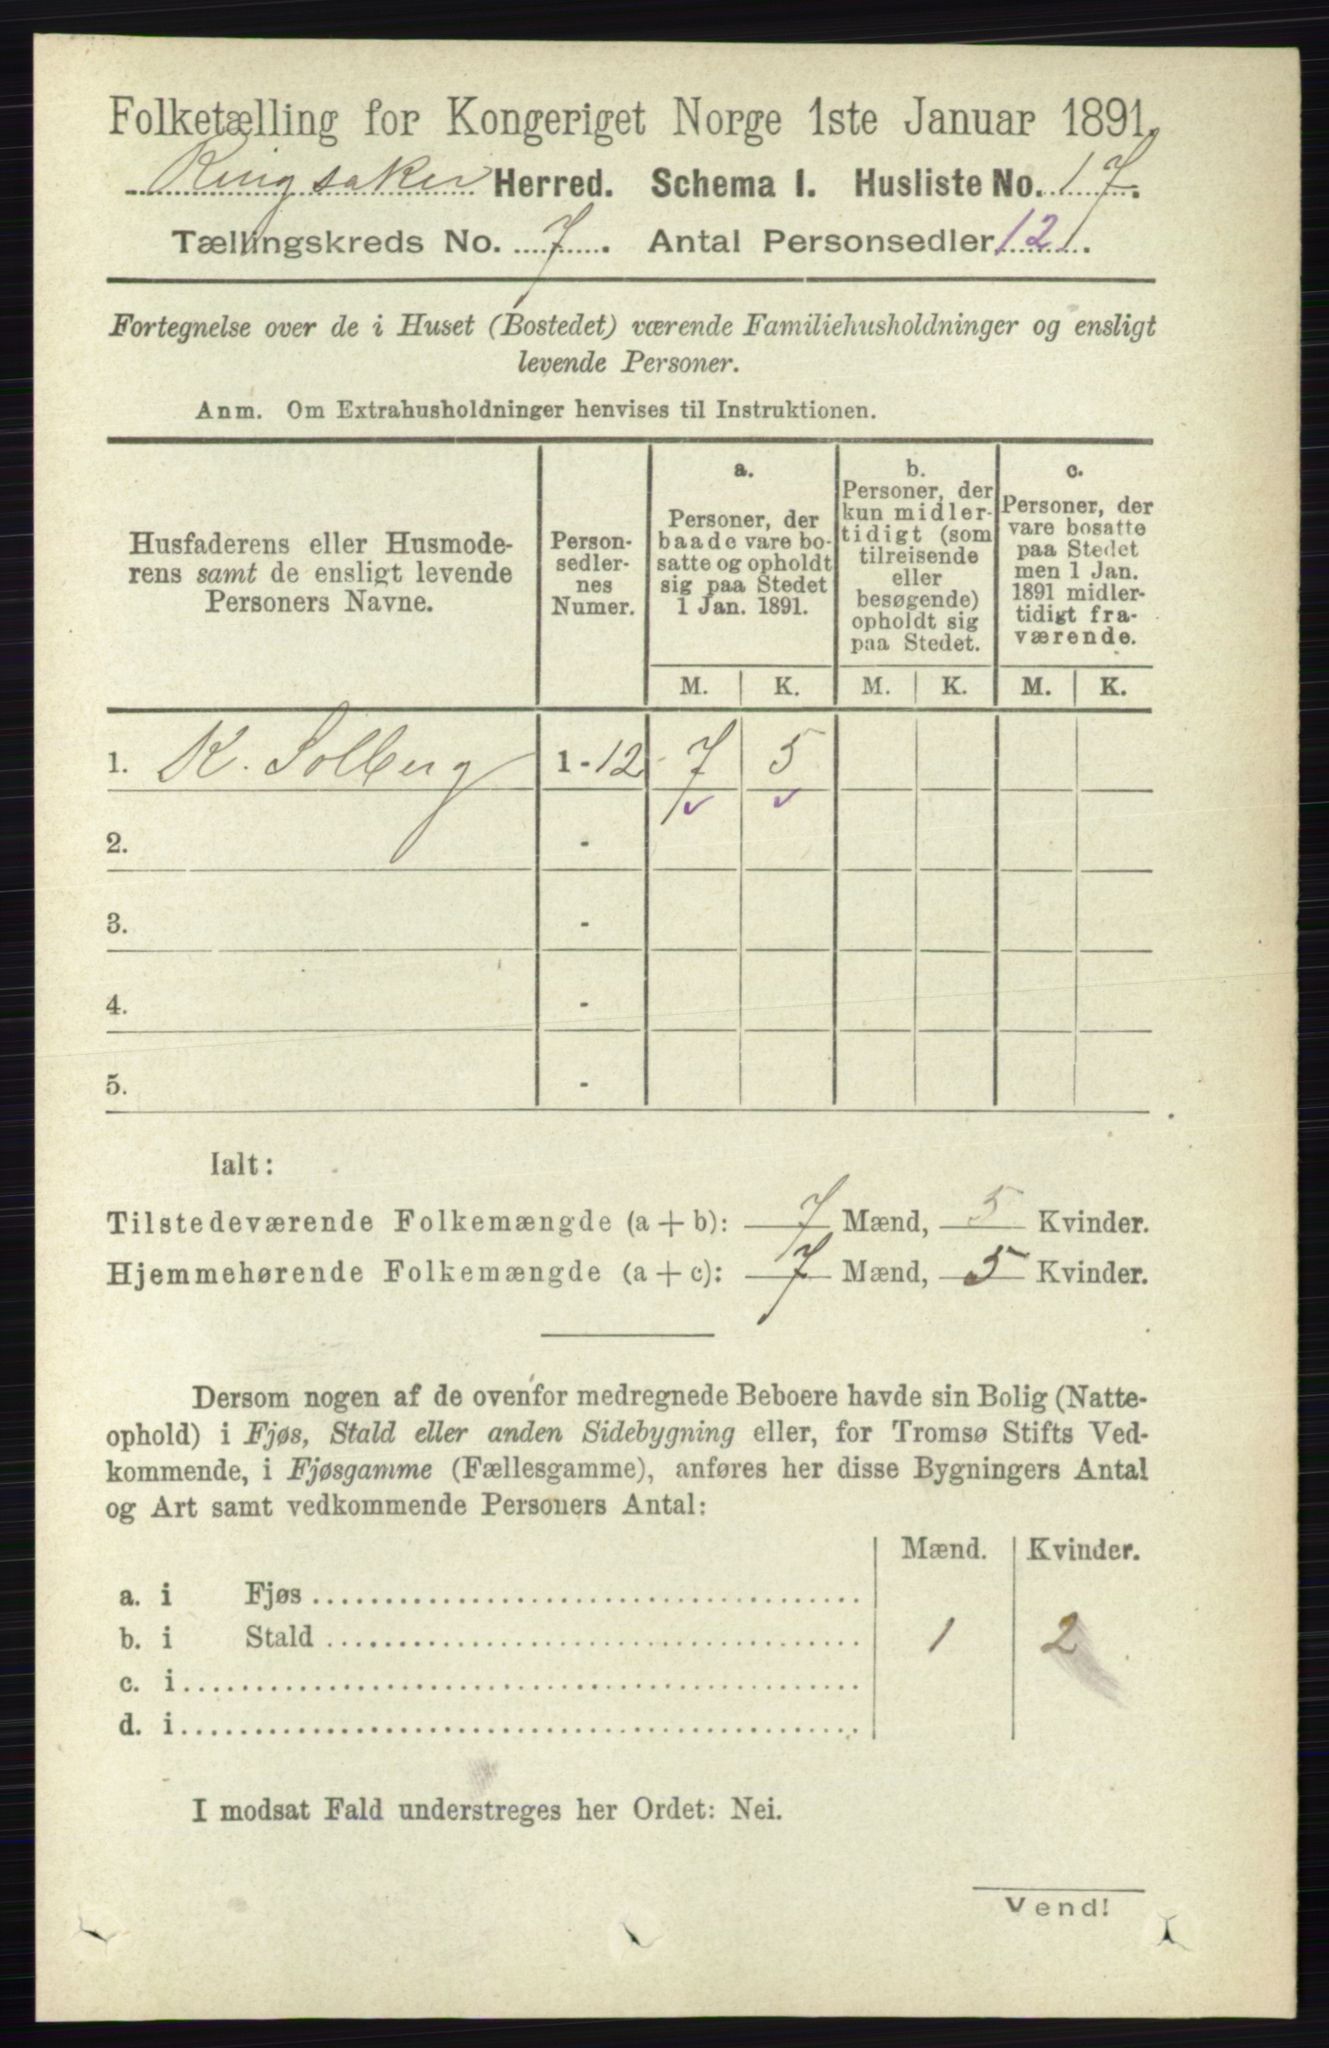 Folketælling for Kongeriget Norge 1ste Januar 1891.
Ringsaker Herred. Schema I. Husliste No. 17.
Tællingskreds No. 7. Antal Personsedler 12.
Fortegnelse over de i Huset (Bostedet) værende Familiehusholdninger og ensligt
levende Personer.
Anm. Om Extrahusholdninger henvises til Instruktionen.
Husfaderens eller Husmode-
rens samt de ensligt levende
Personers Navne.
Person-
sedler-
nes
Numer.
a.
Personer, der
baade vare bo-
satte og opholdt
sig paa Stedet
1 Jan. 1891.
b.
Personer, der
kun midler-
tidigt (som
tilreisende
eller
besøgende)
opholdt sig
paa Stedet.
c.
Personer, der
vare bosatte
paa Stedet
men 1 Jan.
1891 midler-
tidigt fra-
værende.
M. K. M. K. M. K.
1. K. Solberg 1 - 12 7 5
2. -
3. -
4. -
5. -
Ialt:
Tilstedeværende Folkemængde (a + b): 7 Mænd, 5 Kvinder.
Hjemmehørende Folkemængde (a + c): 7 Mænd, 5 Kvinder.
Dersom nogen af de ovenfor medregnede Beboere havde sin Bolig (Natte-
ophold) i Fjøs, Stald eller anden Sidebygning eller, for Tromsø Stifts Ved-
kommende, i Fjøsgamme (Fællesgamme), anføres her disse Bygningers Antal
og Art samt vedkommende Personers Antal:
Mænd. Kvinder.
a. i Fjøs
b. i Stald 1 2
c. i
d. i
I modsat Fald understreges her Ordet: Nei.
Vend!